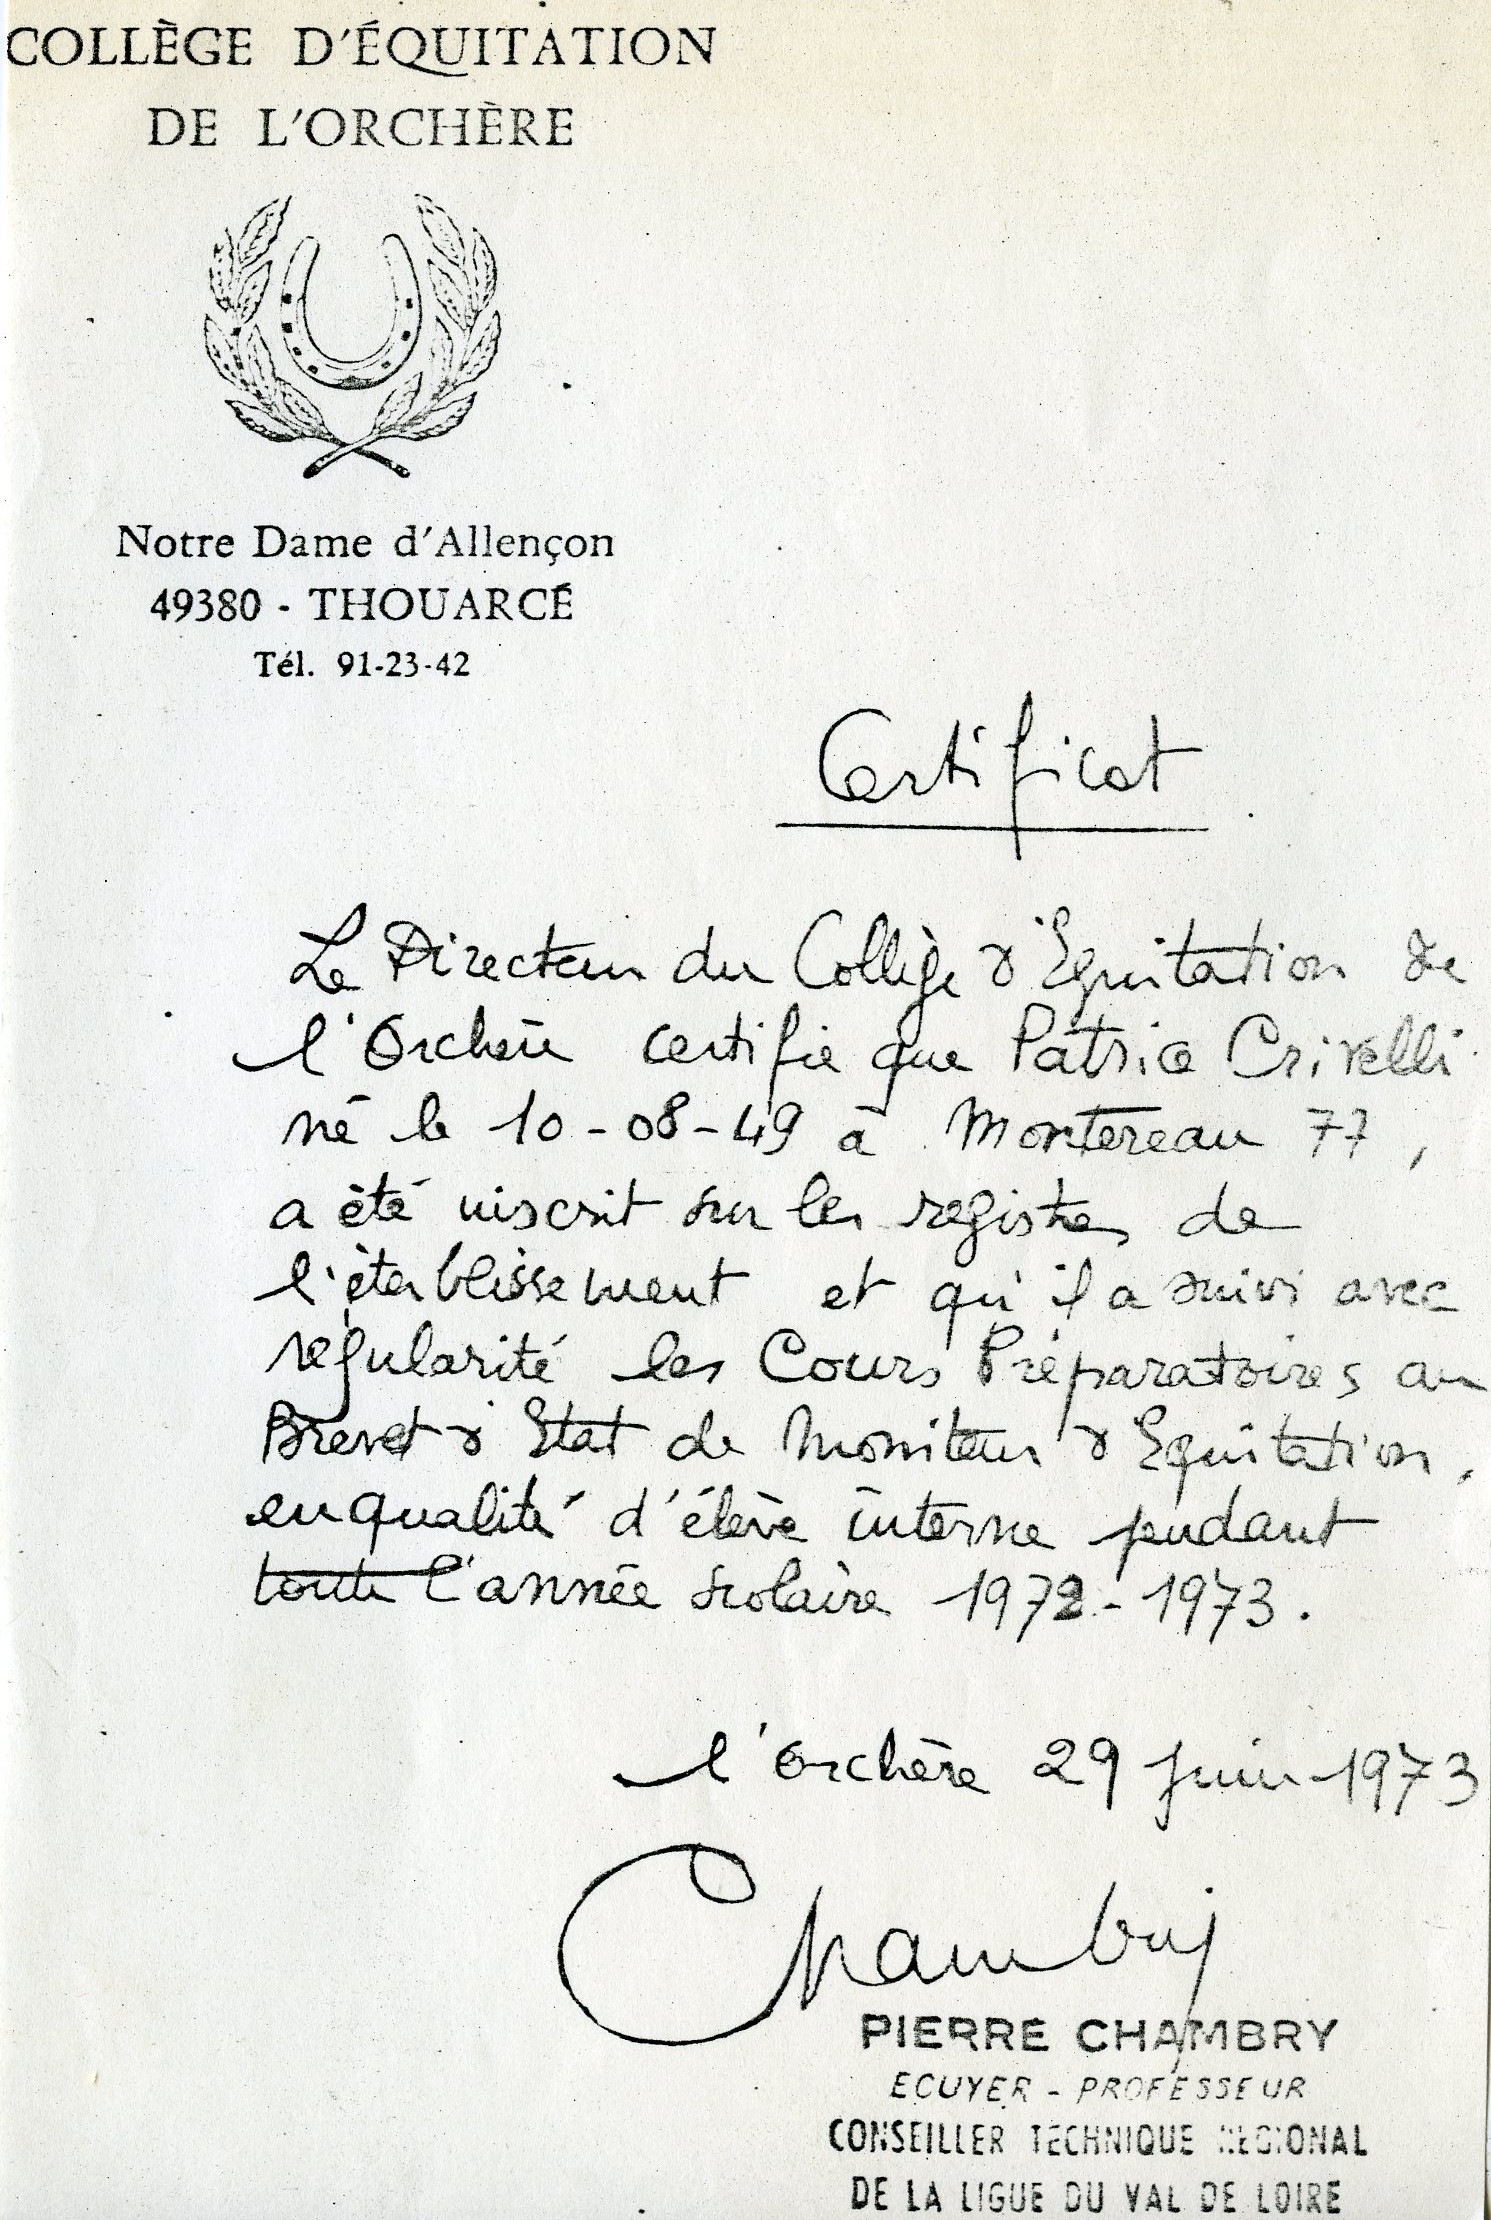 COLLÈGE D'ÉQUITATION
DE L'ORCHÈRE
Notre Dame d'Allençon
49380 - THOUARCÉ
Tél. 91-23-42
Certificat
Le Directeur du Collège d'Equitation de
l'Orchère certifie que Patrice Crivelli
né le 10-08-49 à Montereau 77,
a été inscrit sur les registres de
l'établissement et qu'il a suivi avec
régularité les Cours Préparatoires au
Brevet d'Etat de Moniteur d'Equitation,
en qualité d'élève interne pendant
toute l'année scolaire 1972-1973.
l'Orchère 29 juin 1973
Chambry
PIERRE CHAMBRY
ECUYER - PROFESSEUR
CONSEILLER TECHNIQUE REGIONAL
DE LA LIGUE DU VAL DE LOIRE